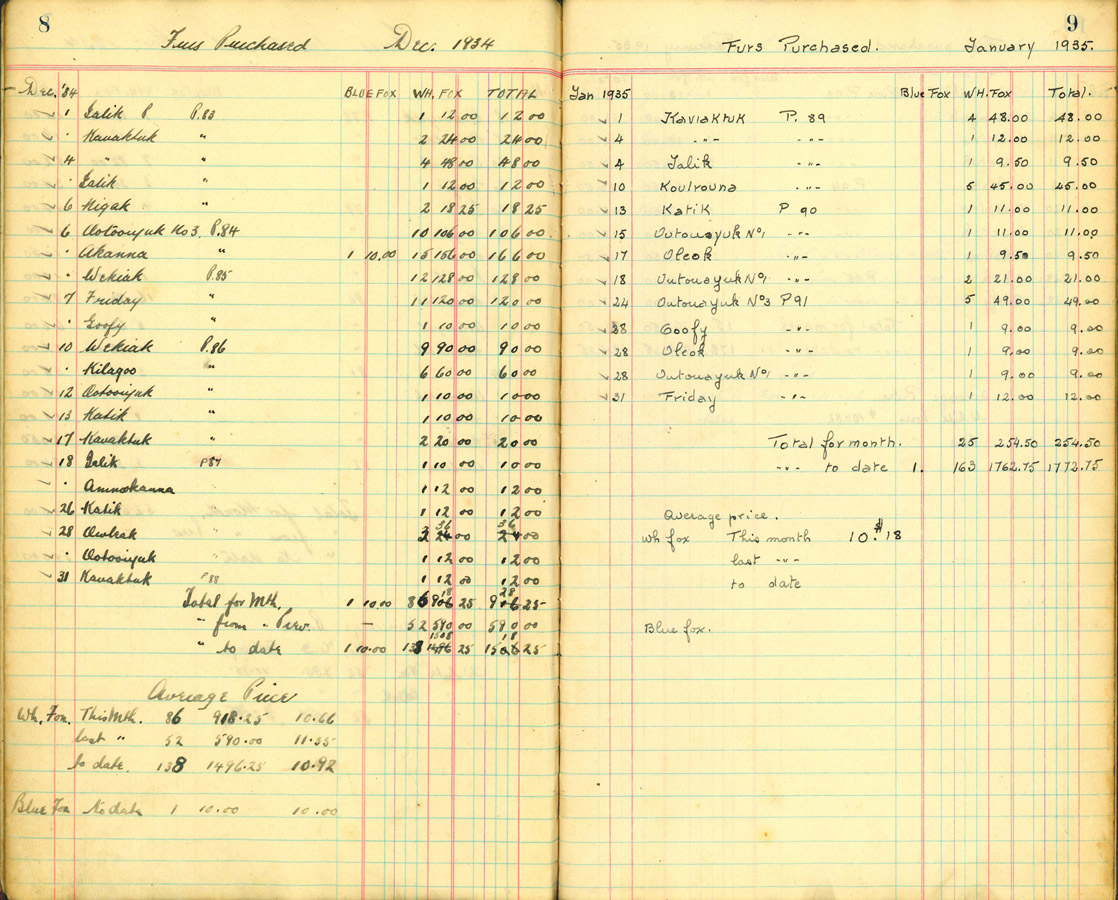 8
Furs Purchased Dec. 1934
Dec. '34 BLUE FOX WH. FOX TOTAL
1 Jalik P. P.83 1 12 00 12 00
" Kavaktuk " 2 24 00 24 00
4 " " " 4 48 00 48 00
" Jalik " 1 12 00 12 00
6 Higak " 2 18 25 18 25
6 Ootooiyuk No 3. P.84 10 106 00 106 00
" Akanna " 1 10.00 15 156 00 166 00
" Wekiak P.85 12 128 00 128 00
7 Friday " 11 120 00 120 00
" Goofy " 1 10 00 10 00
10 Wekiak P.86 9 90 00 90 00
" Kilagoo " 6 60 00 60 00
12 Ootooiyuk " 1 10 00 10 00
13 Katik " 1 10 00 10 00
17 Kavaktuk " 2 20 00 20 00
18 Jalik P87 1 10 00 10 00
" Ammokanna 1 12 00 12 00
26 Katik " 1 12 00 12 00
28 " 3 36 00 36 00
" Ootooiyuk " 1 12 00 12 00
31 Kavaktuk P88 1 12 00 12 00
Total for Mth. 1 10.00 86 918 25 928 25
" from " Prev. — 52 590 00 590 00
" to date 1 10.00 138 1508 25 1518 25
Average Price
Wh. Fox. This Mth. 86 918.25 10.66
last " 52 590.00 11.35
to date. 138 1496.25 10.92
Blue Fox to date 1 10.00 10.00
9
Furs Purchased. January 1935.
Jan 1935 Blue Fox WH. Fox Total.
1 Kaviaktuk P. 89 4 48.00 48.00
4 -"- -"- 1 12.00 12.00
4 Jalik -"- 1 9.50 9.50
10 Koulrouna -"- 5 45.00 45.00
13 Katik P 90 1 11.00 11.00
15 Outouayuk No1 -"- 1 11.00 11.00
17 Oleok -"- 1 9.50 9.50
18 Outouayuk No1 -"- 2 21.00 21.00
24 Outouayuk No3 P91 5 49.00 49.00
28 Goofy -"- 1 9.00 9.00
28 Oleok -"- 1 9.00 9.00
28 Outouayuk No1 -"- 1 9.00 9.00
31 Friday -"- 1 12.00 12.00
Total for month. 25 254.50 254.50
-"- to date 1. 163 1762.75 1772.75
Average price.
Wh fox This month $10.18
last -"-
to date
Blue fox.